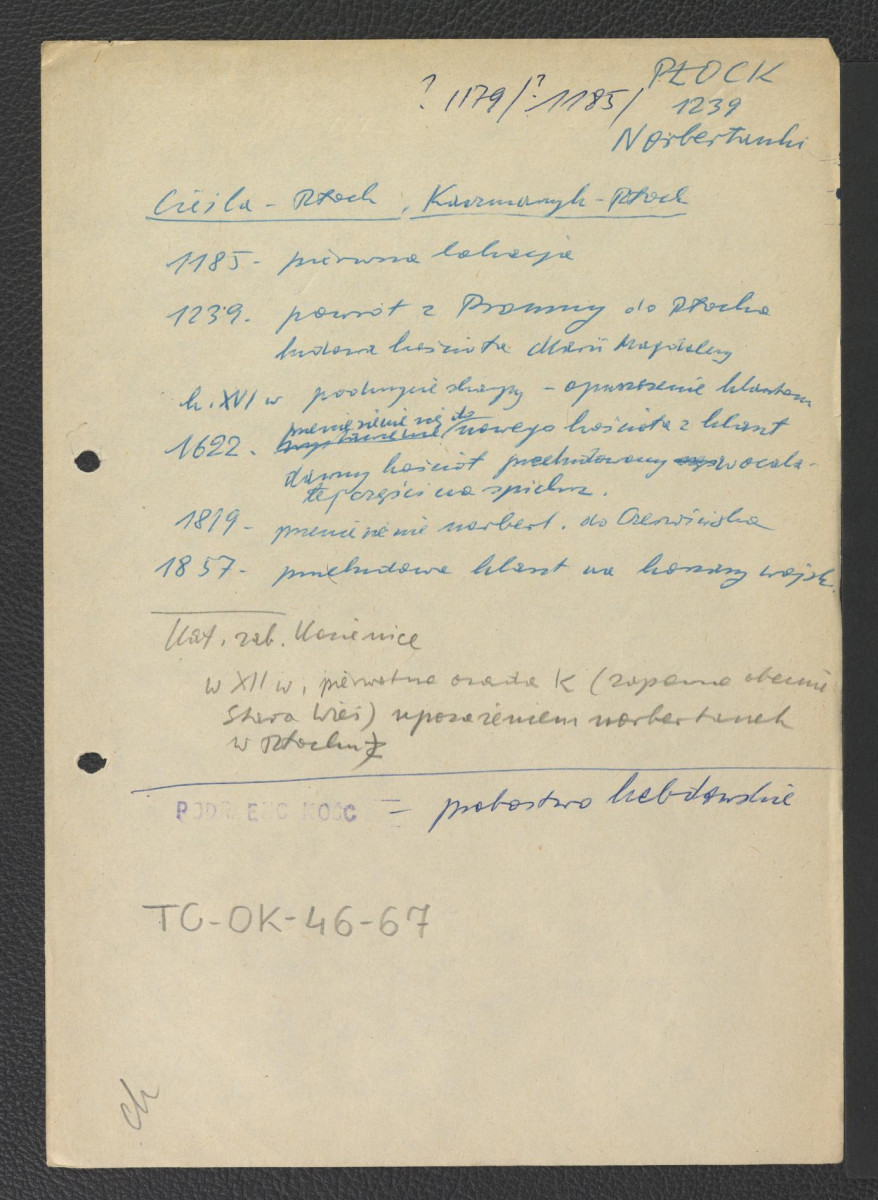 PŁOCK
? 1179 /? 1185/ 1239
Norbertanki
Cieśla - Płock, Kaczmarczyk - Płock
1185 - pierwsza lokacja
1239. powrót z do Płocka
budowa kościoła Marii Magdaleny
k. XVI w podmycie skarpy - opuszczenie klasztoru
1622. przeniesienie się do nowego kościoła z klaszt
dawny kościół przebudowany w ocala-
łej części na spichrz.
1819 - przeniesienie norbert. do Czerwińska
1857 - przebudowa klaszt na koszary wojsk.
Kat. zab. Kozienice
w XII w, pierwotna osada K (zapewne obecnie
Stara Wieś) uposażeniem norbertanek
w Płocku
PODR EŻNOŚC = probostwo hebdowskie
TC-OK-46-67
ch